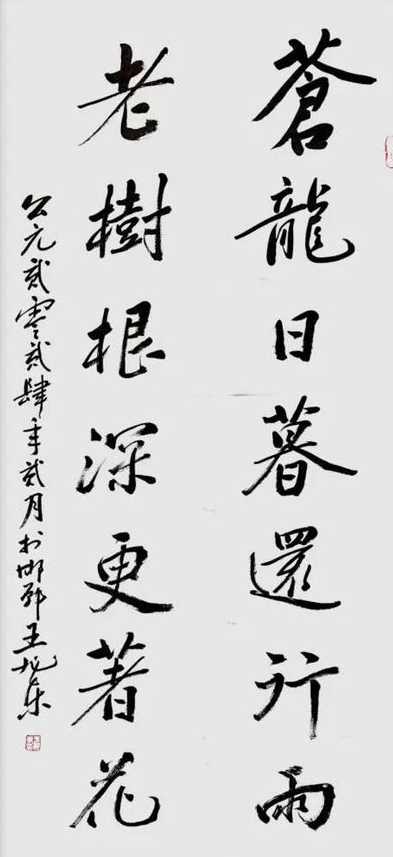 蒼龍日暮還行雨
老樹根深更著花
公元贰零贰肆年贰月於邯郸王旭东